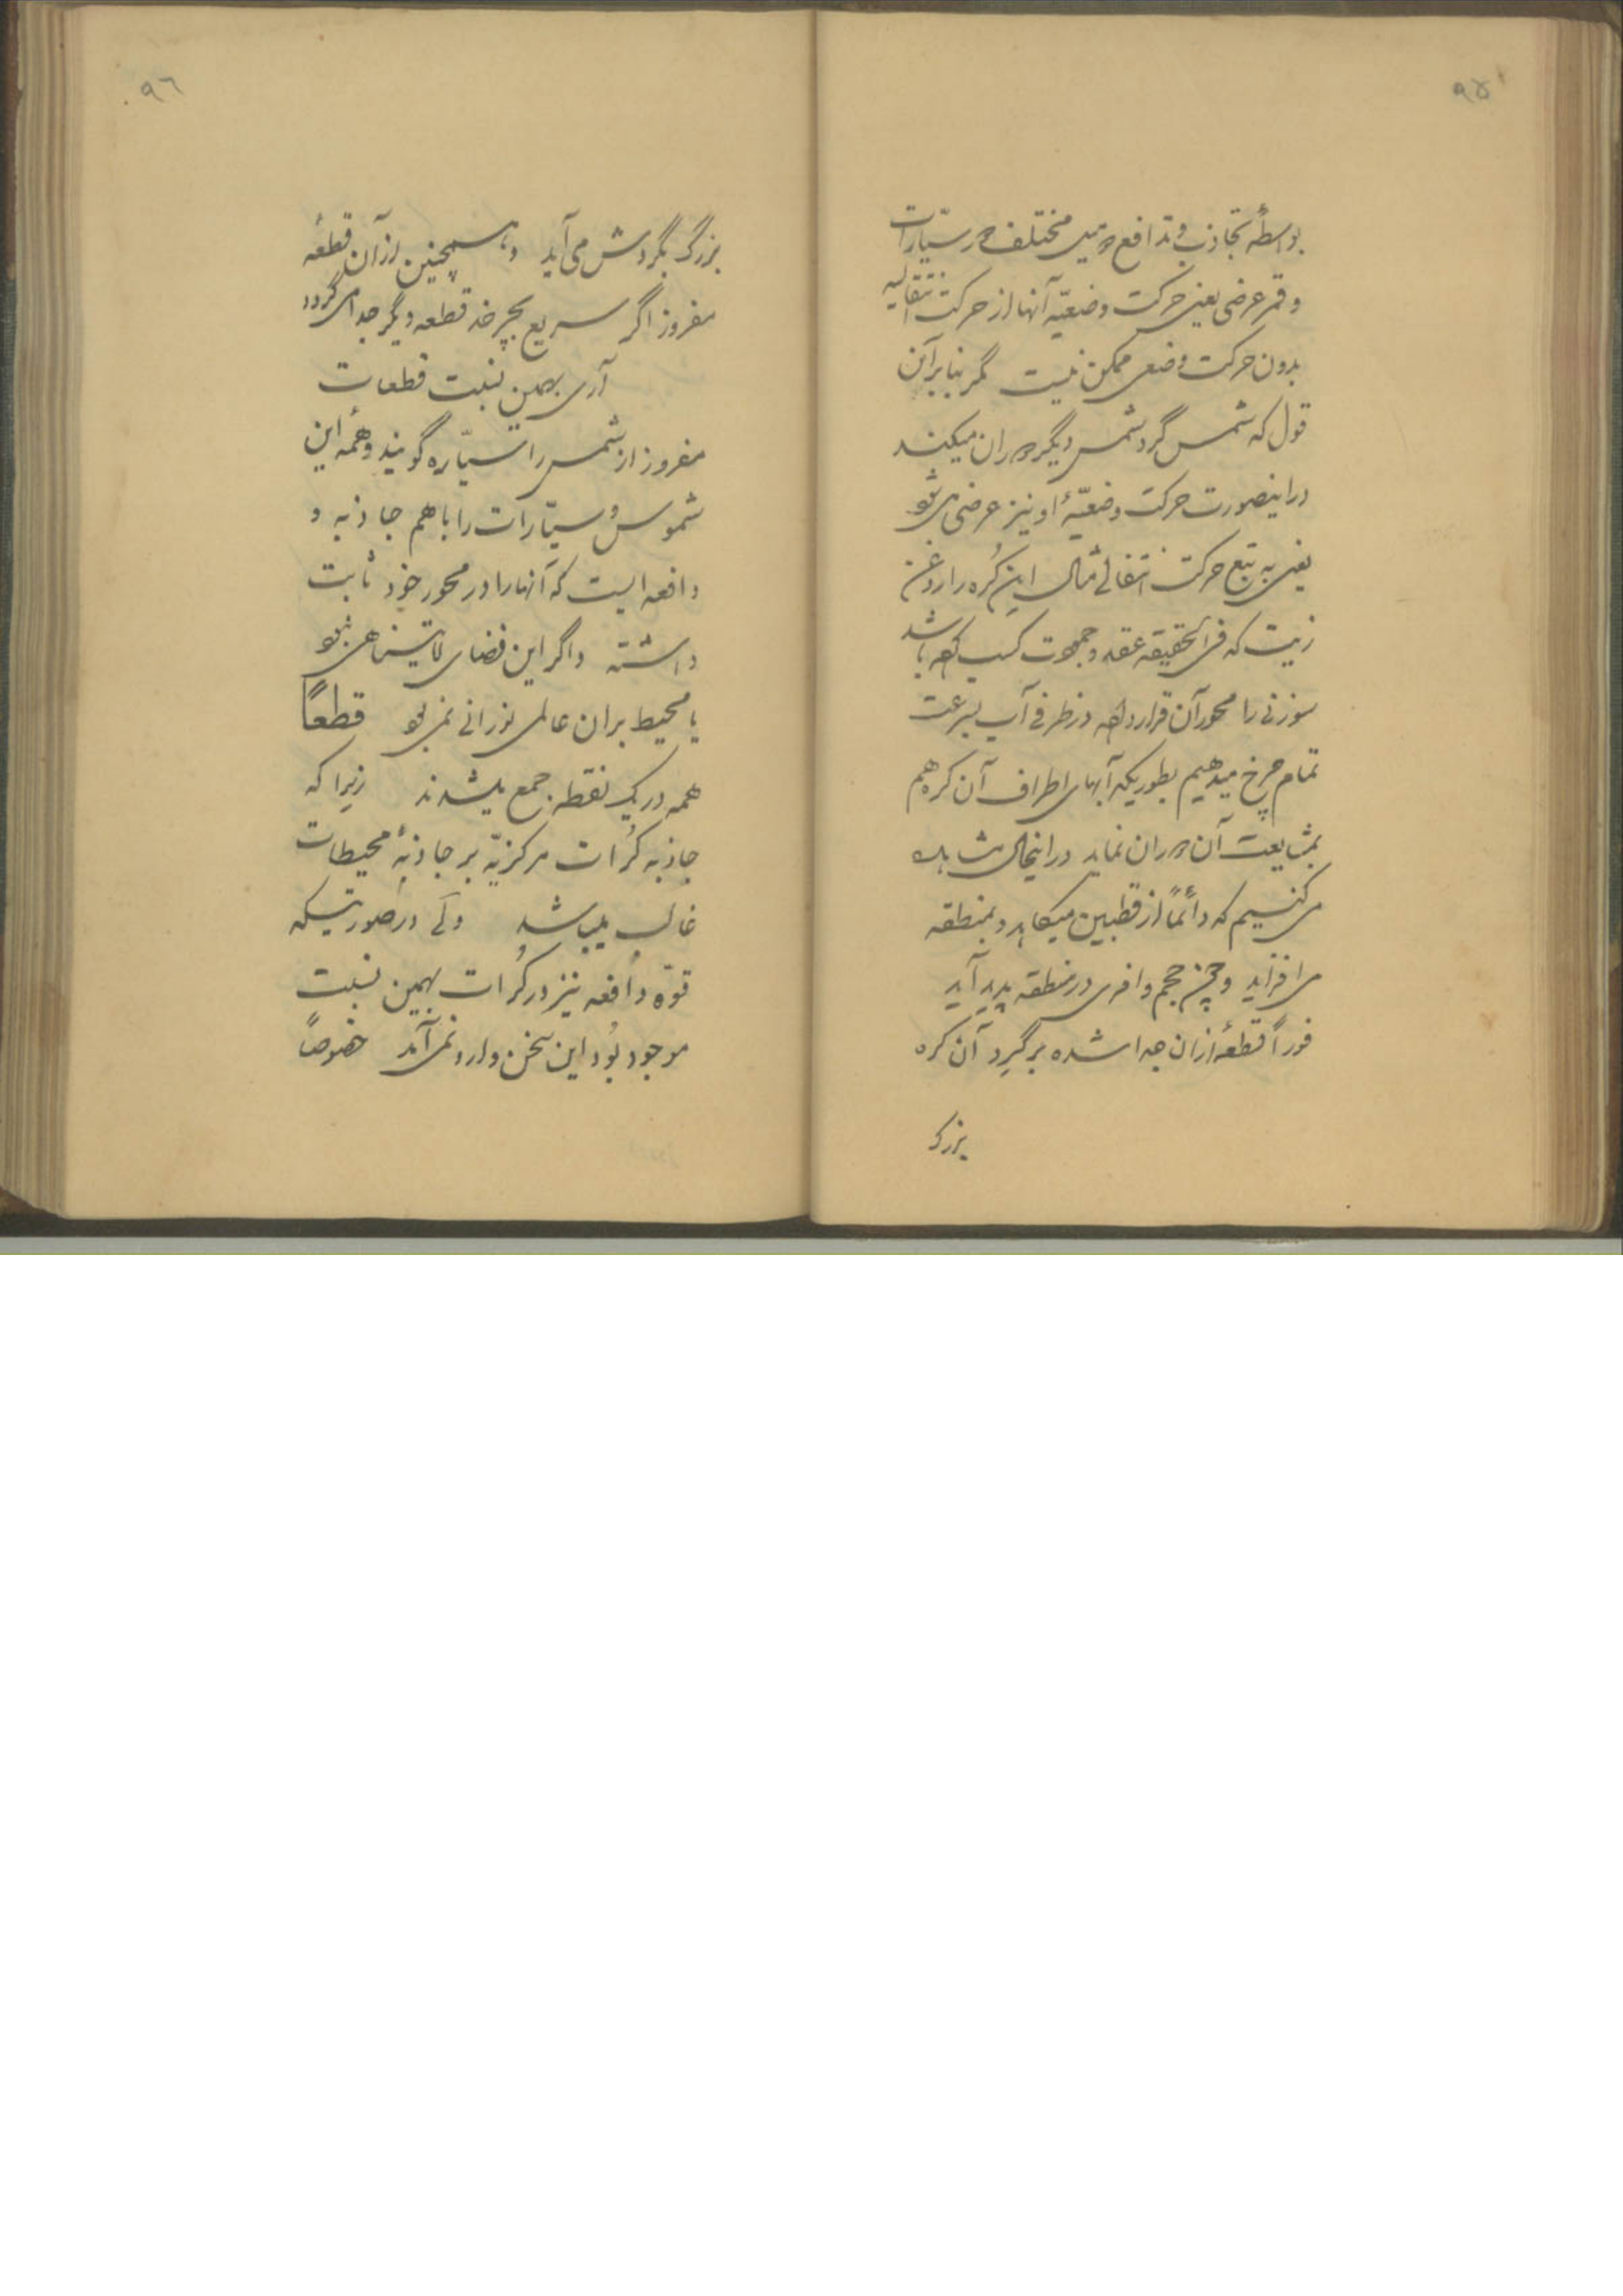 ۹۵
بواسطهٔ تجاذب و تدافع دو سیر مختلف در سیّارات
و قمر عرضی یعنی حرکت وضعیّه آنها از حرکت انتقالیه
بدون حرکت وضعی ممکن نیست مگر بنا بر آن
قول که شمس گرد شمس دیگر دوران میکند
در اینصورت حرکت وضعیّهٔ او نیز عرضی میشود
یعنی به تبع حرکت انتقالی مثال این کُره را روغن
زیت که فی الحقیقه عقد و جمودت کسب کرده باشد
سوزنی را محور آن قرار داده در ظرفی آب بسرعت
تمام چرخ میدهیم بطوریکه آبهای اطراف آن کره هم
بمشایعت آن دوران نماید در اینحال مشاهده
می کنیم که دائماً از قطبین میکاهد و بمنطقه
می افزاید و چون حجم وافری در منطقه پدید آید
فوراً قطعهٔ از آن جدا شده بر گِرد آن کره
بزرگ
۹٦
بزرگ بگردش می آید و همچنین از آن قطعهٔ
مفروز اگر سریع بچرخد قطعه دیگر جدا می گردد
آری بهمین نسبت قطعات
مفروز از شمس را سیّاره گویند و همه این
شموس و سیّارات را با هم جاذبه و
دافعه ایست که آنها را در محور خود ثابت
داشته و اگر این فضای لایتناهی نبود
یا محیط بران عالمی نورانی نمی بود قطعاً
همه در یک نقطه جمع میشدند زیرا که
جاذبه کُرات مرکزیّه بر جاذبهٔ محیطات
غالب میباشد ولی در صورتیکه
قوّه دافعه نیز در کُرات بهمین نسبت
موجود بُود این سخن وارد نمی آید خصوصاً